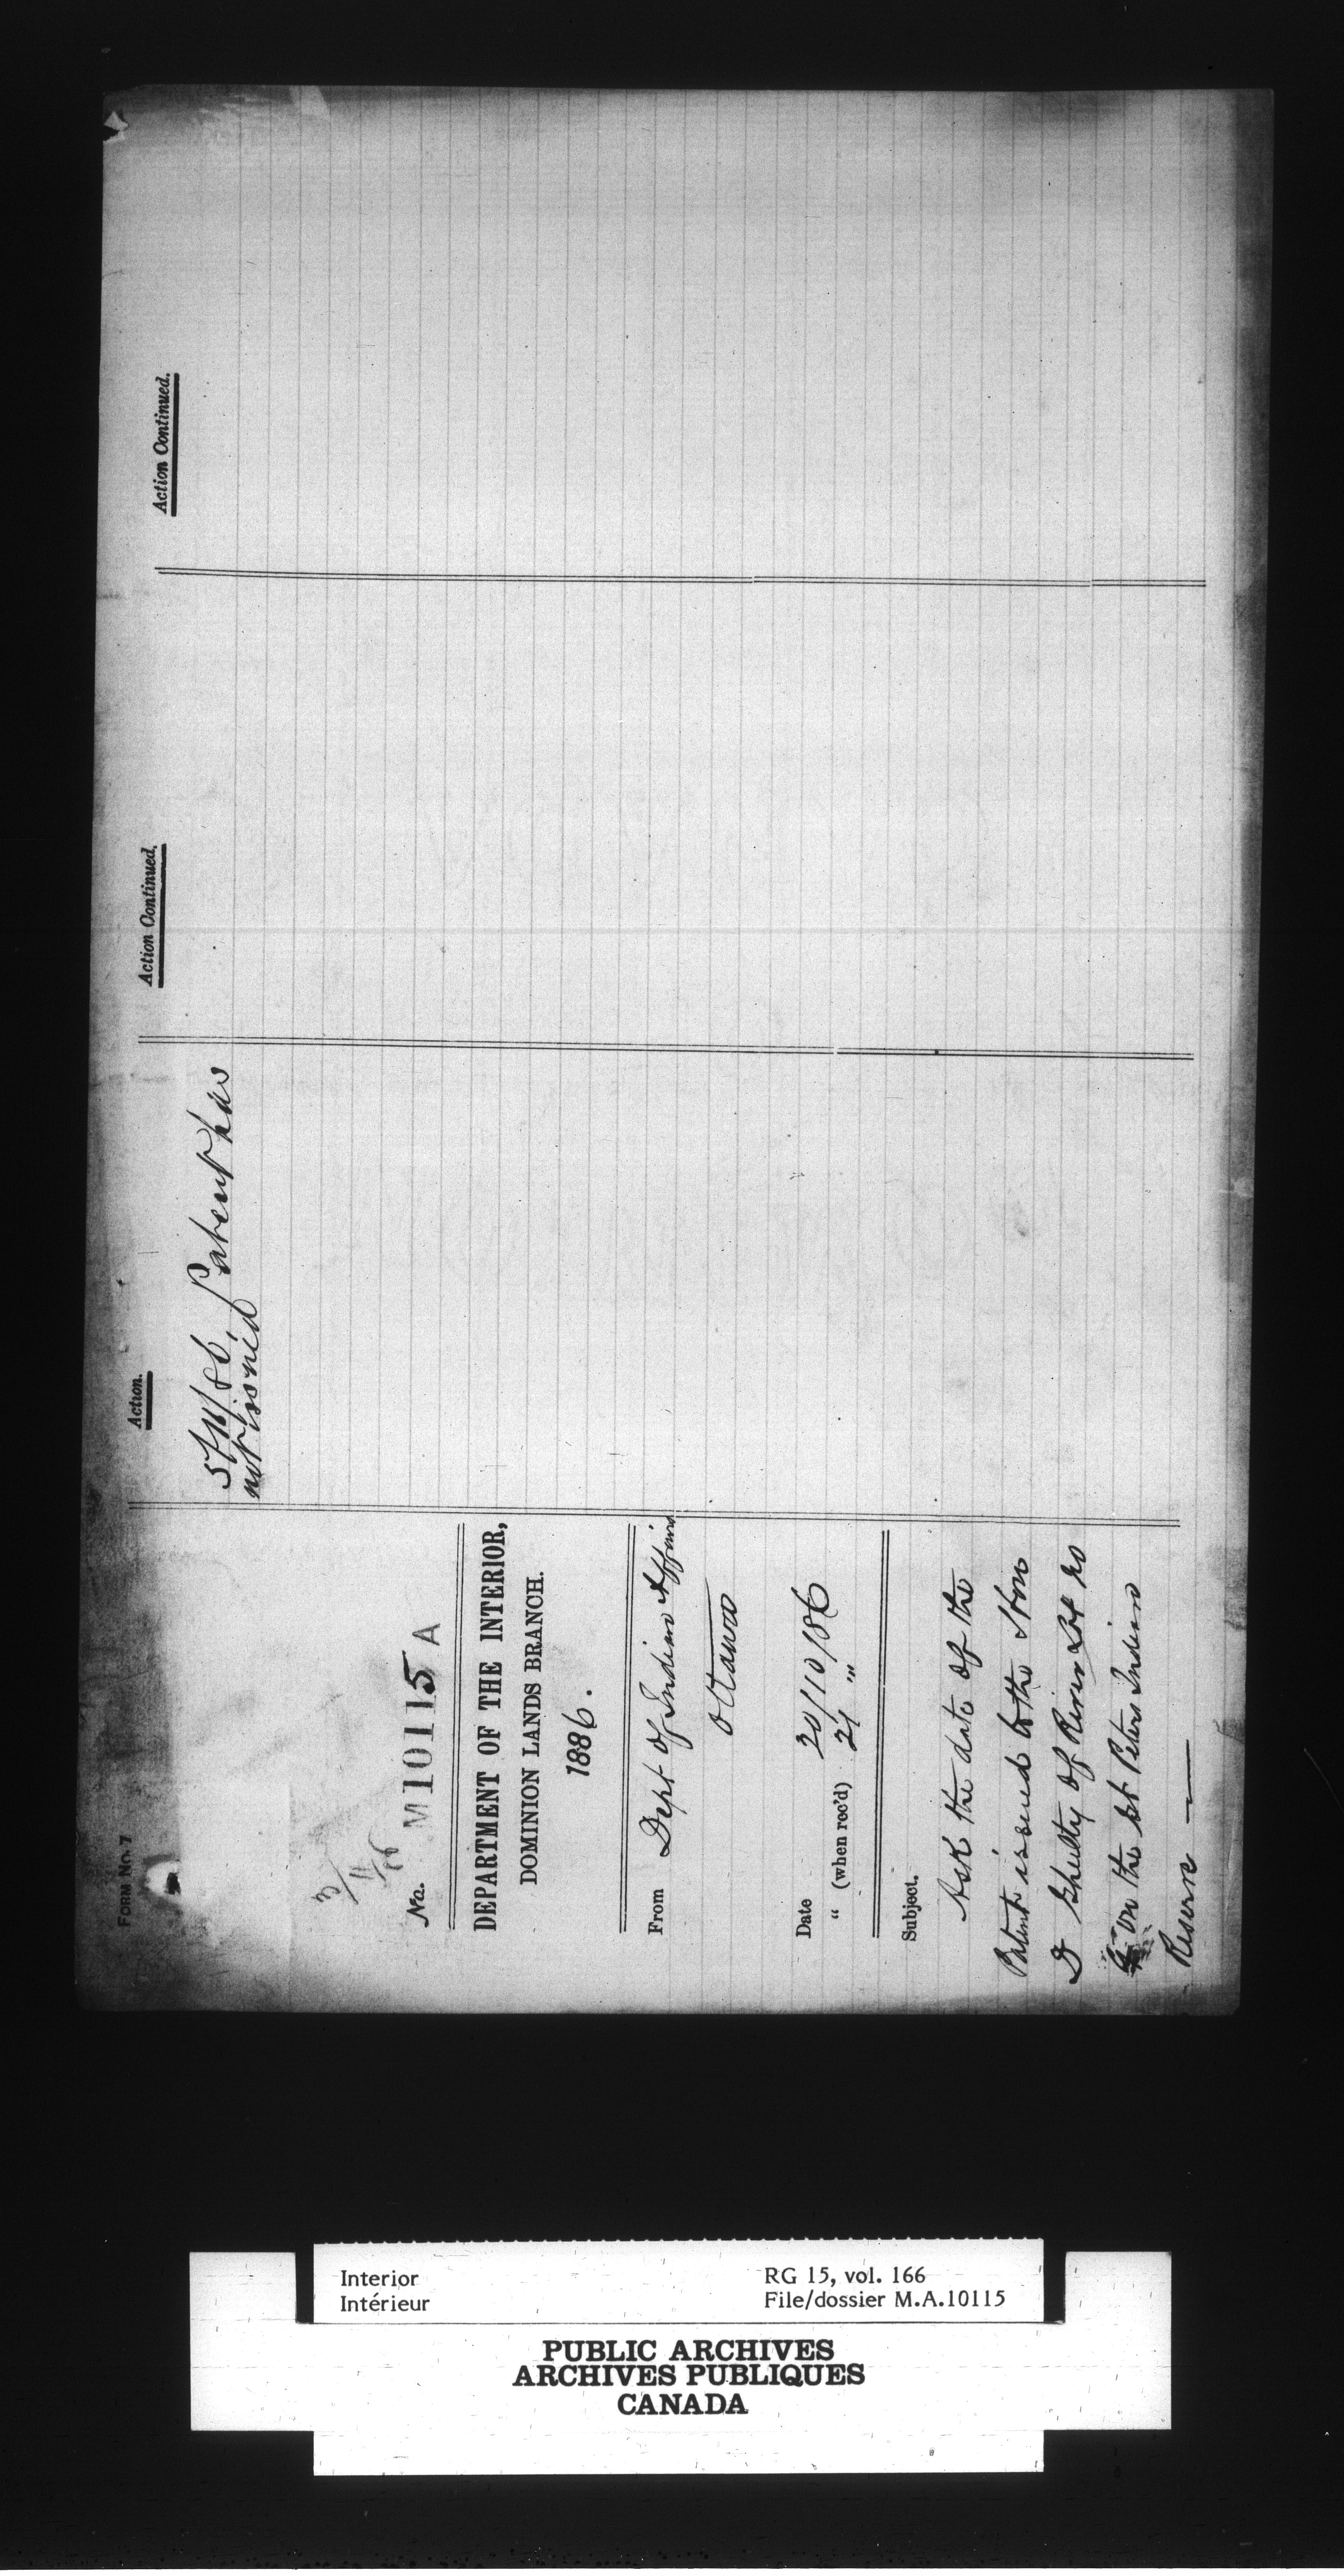 FORM No. 7
6/11/86
No. M10115 A
DEPARTMENT OF THE INTERIOR,
DOMINION LANDS BRANCH.
1886.
From Dept of Indian Affairs
Ottawa
Date 20/10/86
" (when rec'd) 21 " "
Subject.
Ask the date of the
Patent issued to the Hon
D Shultz of River Lot no
on the St Peters Indian
Reserve
Action.
5/11/86. Patent has
not issued
Action Continued.
Action Continued.
Interior
Intérieur
RG 15, vol. 166
File/dossier M.A.10115
PUBLIC ARCHIVES
ARCHIVES PUBLIQUES
CANADA